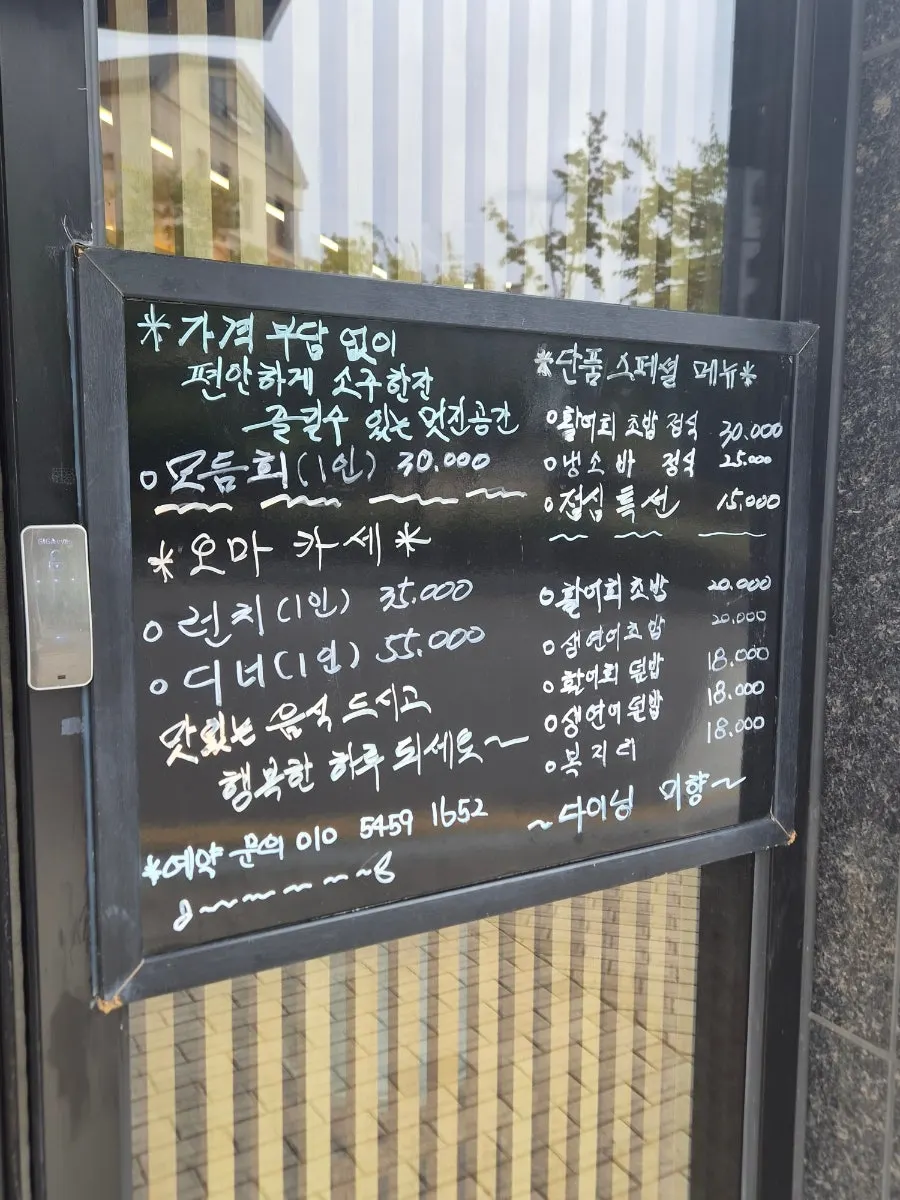 * 가격 부담 없이
편안하게 소주한잔
즐길수 있는 멋진공간
o 모듬회(1인) 30.000
* 오마카세 *
o 런치(1인) 35.000
o 디너(1인) 55.000
맛있는 음식 드시고
행복한 하루 되세요~
*예약 문의 010 5459 1652
*단품 스페셜 메뉴*
o 활어회 초밥 정식 30.000
o 냉소바 정식 25.000
o 점심 특선 15.000
o 활어회초밥 20.000
o 생연어초밥 20.000
o 활어회 덮밥 18.000
o 생연어덮밥 18.000
o 복지리 18.000
~다이닝 미향~